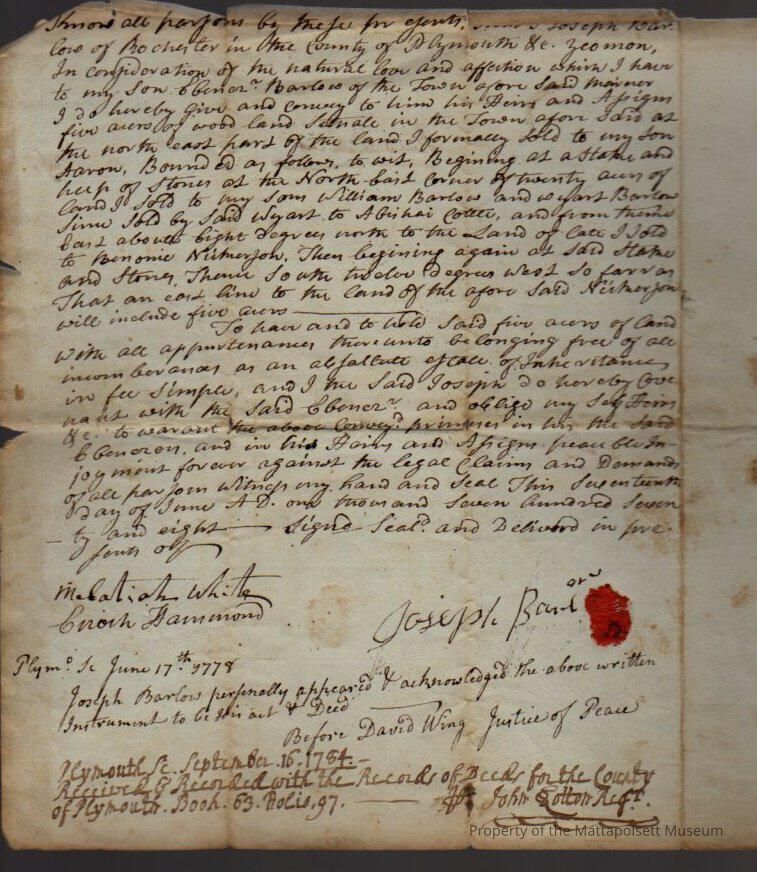 Know all parsons by these presents, Joseph Bar
low of Rochester in the County of Plymouth &c. yeomon,
In consideration of the natural love and affection which I have
to my son Ebenezr. Barlow of the Town afore said
I do hereby Give and convey to him his Heirs and Assigns
five acers of wood land Setuate in the Town afore Said at
the north east part of the land I formally Sold to my Son
Aaron, Bounded as follows, to wit, Begining at a Stake and
heep of Stones at the North East Corner of twenty acers of
land I sold to my Sons William Barlow and wyart Barlow
Sinse Sold by Said Wyart to Abishai and from thense
East about Eight Degrees north to the Land of Late I Sold
to Benome Nickerson, Then begining again at Said Stake
and Stones, Thense South twelve Degrees West So farr as
That an east line to the land of the afore Said Nickerson
will include five acers
To have and to hold Said five acers of land
with all appurtenances thereunto belonging free of all
incomberances as an absallute estate of Inheritance
in fee Simple, and I the Said Joseph do hereby Cove
nant with the Said Ebenezr. and oblige my Self Heirs
&c. to warant the above Convey.d primises in his the Said
Ebenezer, and in his Hairs and Assigns peaceble In
joyment forever against the legal Claims and Demands
of all parsons witness my hand and Seal This Seventeenth
day of June A D. one thousand Seven hundred Seven
ty and eight Signed Seal.d and Deliverd in pre
sents off
Melatiah White
Enoch Hammond
Joseph Barlow
Plymo. Sc June 17th 1778
Joseph Barlow personally appeared & acknowledged the above written
Instrument to be his act & Deed
Before David Wing Justice of Peace
Plymouth Sc. September. 16. 1784.
Received & Recorded with the Records of Deeds for the County
of Plymouth. Book. 63. Folio. 97.
John Cotton Regr.
Property of the Mattapoisett Museum